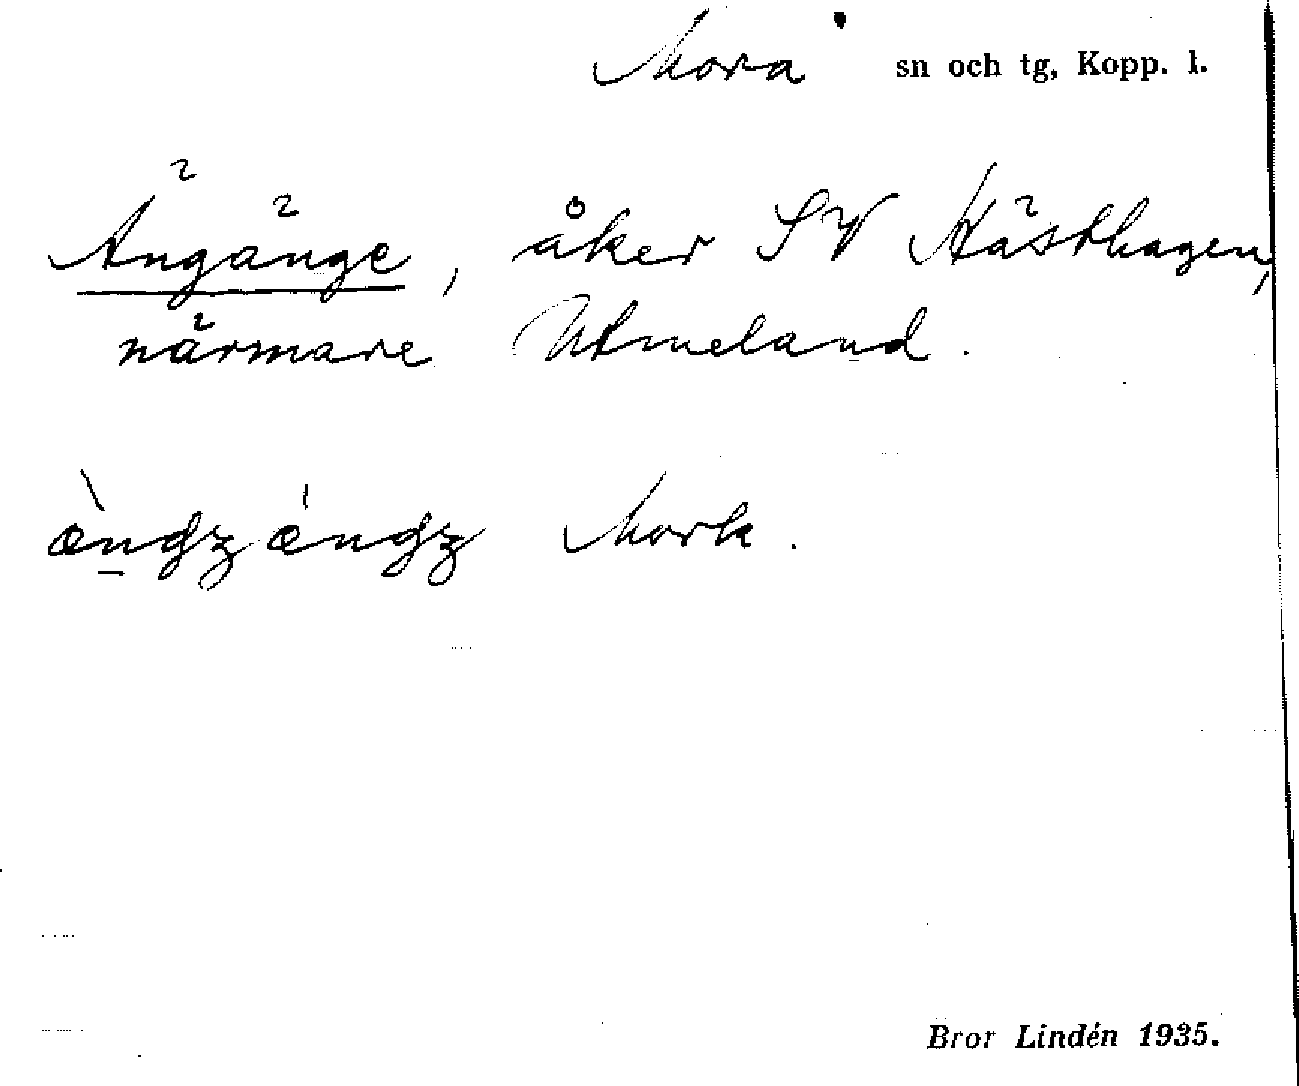 Mora sn och tg, Kopp. l.
Ängänge, åker SV Hästhagen,
närmare Utmeland.
Mork.
Bror Lindén 1935.